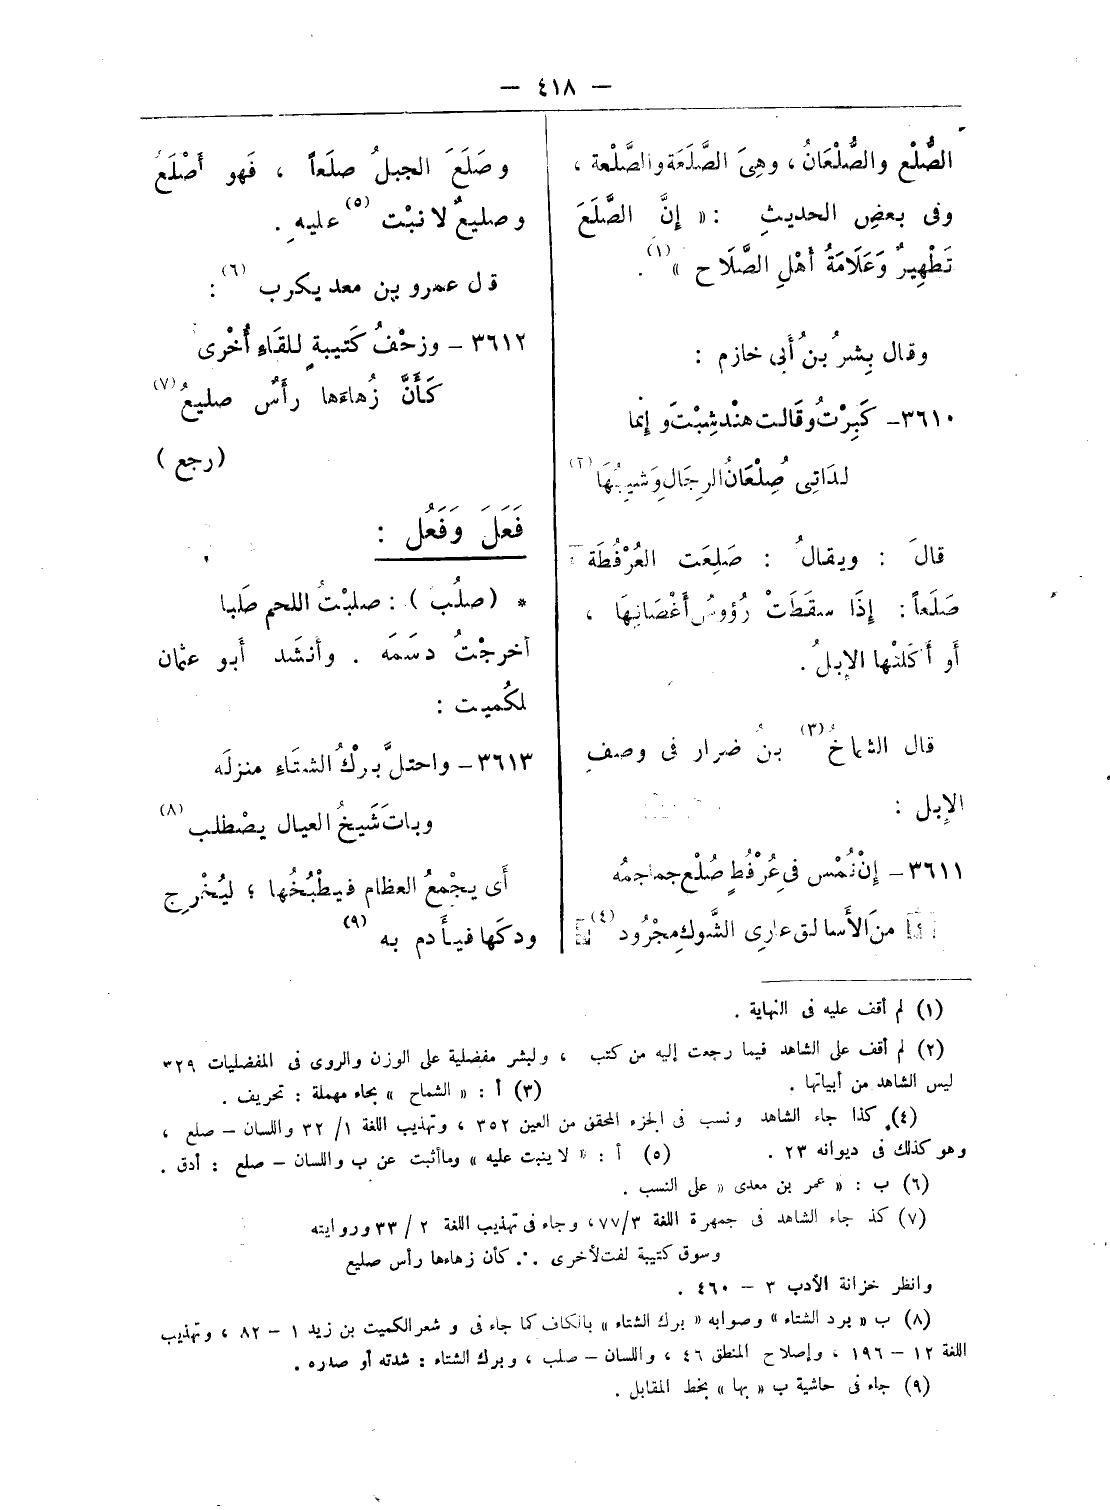 — ٤١٨ —
الصُّلْع والصُّلْعَانُ ، وهِىَ الصَّلَعَة والصَّلْعة ،
وفى بعضِ الحديثِ : « إنَّ الصَّلَعَ
تَطْهِيرٌ وَعَلَامَةُ أهْلِ الصَّلَاح » (١) .
وقال بِشرُ بنُ أَبى خازم :
٣٦١٠ – كَبِرْتُ وقَالت هنْد شِبْتَ وإنما
لدَاتِى صُلْعَانُ الرجَال وَشيبُهَا (٢)
قالَ : ويقالُ : صَلِعَت العُرْفُطَة
صَلَعاً : إذَا سقَطَتْ رُؤوسُ أغْصَانِهَا ،
أو أكَلتْها الإبلُ .
قال الشماخُ (٣) بنُ ضرار فى وصفِ
الإبل :
٣٦١١ – إنْ تُمْس فى عُرْفُطٍ صُلْع جماجمُه
منَ الأَسالق عارِى الشَّوك مجْرُود (٤)
وصَلَعَ الجبلُ صلَعاً ، فَهو أَصْلَعُ
وصليعٌ لا نبْت (٥) عليهِ .
قال عمرو بن معد يكرب (٦) :
٣٦١٢ – وزحْفُ كَتيبةٍ للقَاءِ أُخْرى
كَأَنَّ زُهاءَها رأَسٌ صليعُ (٧)
(رجع)
فَعَلَ وَفَعُل :
* (صلُب) : صلبْتُ اللحم صَلبا
أخرجْتُ دسَمَه . وأنشَد أبو عثمان
لكُميت :
٣٦١٣ – واحتلَّ برْكُ الشتَاءِ منزلَه
وباتَ شَيخُ العيال يصْطلب (٨)
أى يجْمعُ العظام فيطْبُخُها ؛ ليُخْرِج
ودكَها فيأَدم به (٩)
(١) لم أقف عليه فى النهاية .
(٢) لم أقف على الشاهد فيما رجعت إليه من كتب ، ولبشر مفضلية على الوزن والروى فى المفضليات ٣٢٩
ليس الشاهد من أبياتها . (٣) أ : « الشماح » بحاء مهملة : تحريف .
(٤) كذا جاء الشاهد ونسب فى الجزء المحقق من العين ٣٥٢ ، وتهذيب اللغة ١/ ٣٢ واللسان – صلع ،
وهو كذلك فى ديوانه ٢٣ . (٥) أ : « لا ينبت عليه » وماأثبت عن ب واللسان – صلع : أدق .
(٦) ب : « عمر بن معدى « على النسب .
(٧) كذ جاء الشاهد فى جمهرة اللغة ٧٧/٣ ، وجاء فى تهذيب اللغة ٢ / ٣٣ وروايته
وسوق كتيبة لفت لأخرى .·. كأن زهاءها رأس صليع
وانظر خزانة الأدب ٣ – ٤٦٠ .
(٨) ب « برد الشتاء » وصوابه « برك الشتاء » بالكاف كما جاء فى و شعر الكميت بن زيد ١ – ٨٢ ، وتهذيب
اللغة ١٢ – ١٩٦ ، وإصلاح المنطق ٤٦ ، واللسان – صلب ، وبرك الشتاء : شدته أو صدره .
(٩) جاء فى حاشية ب « بها » بخط المقابل .